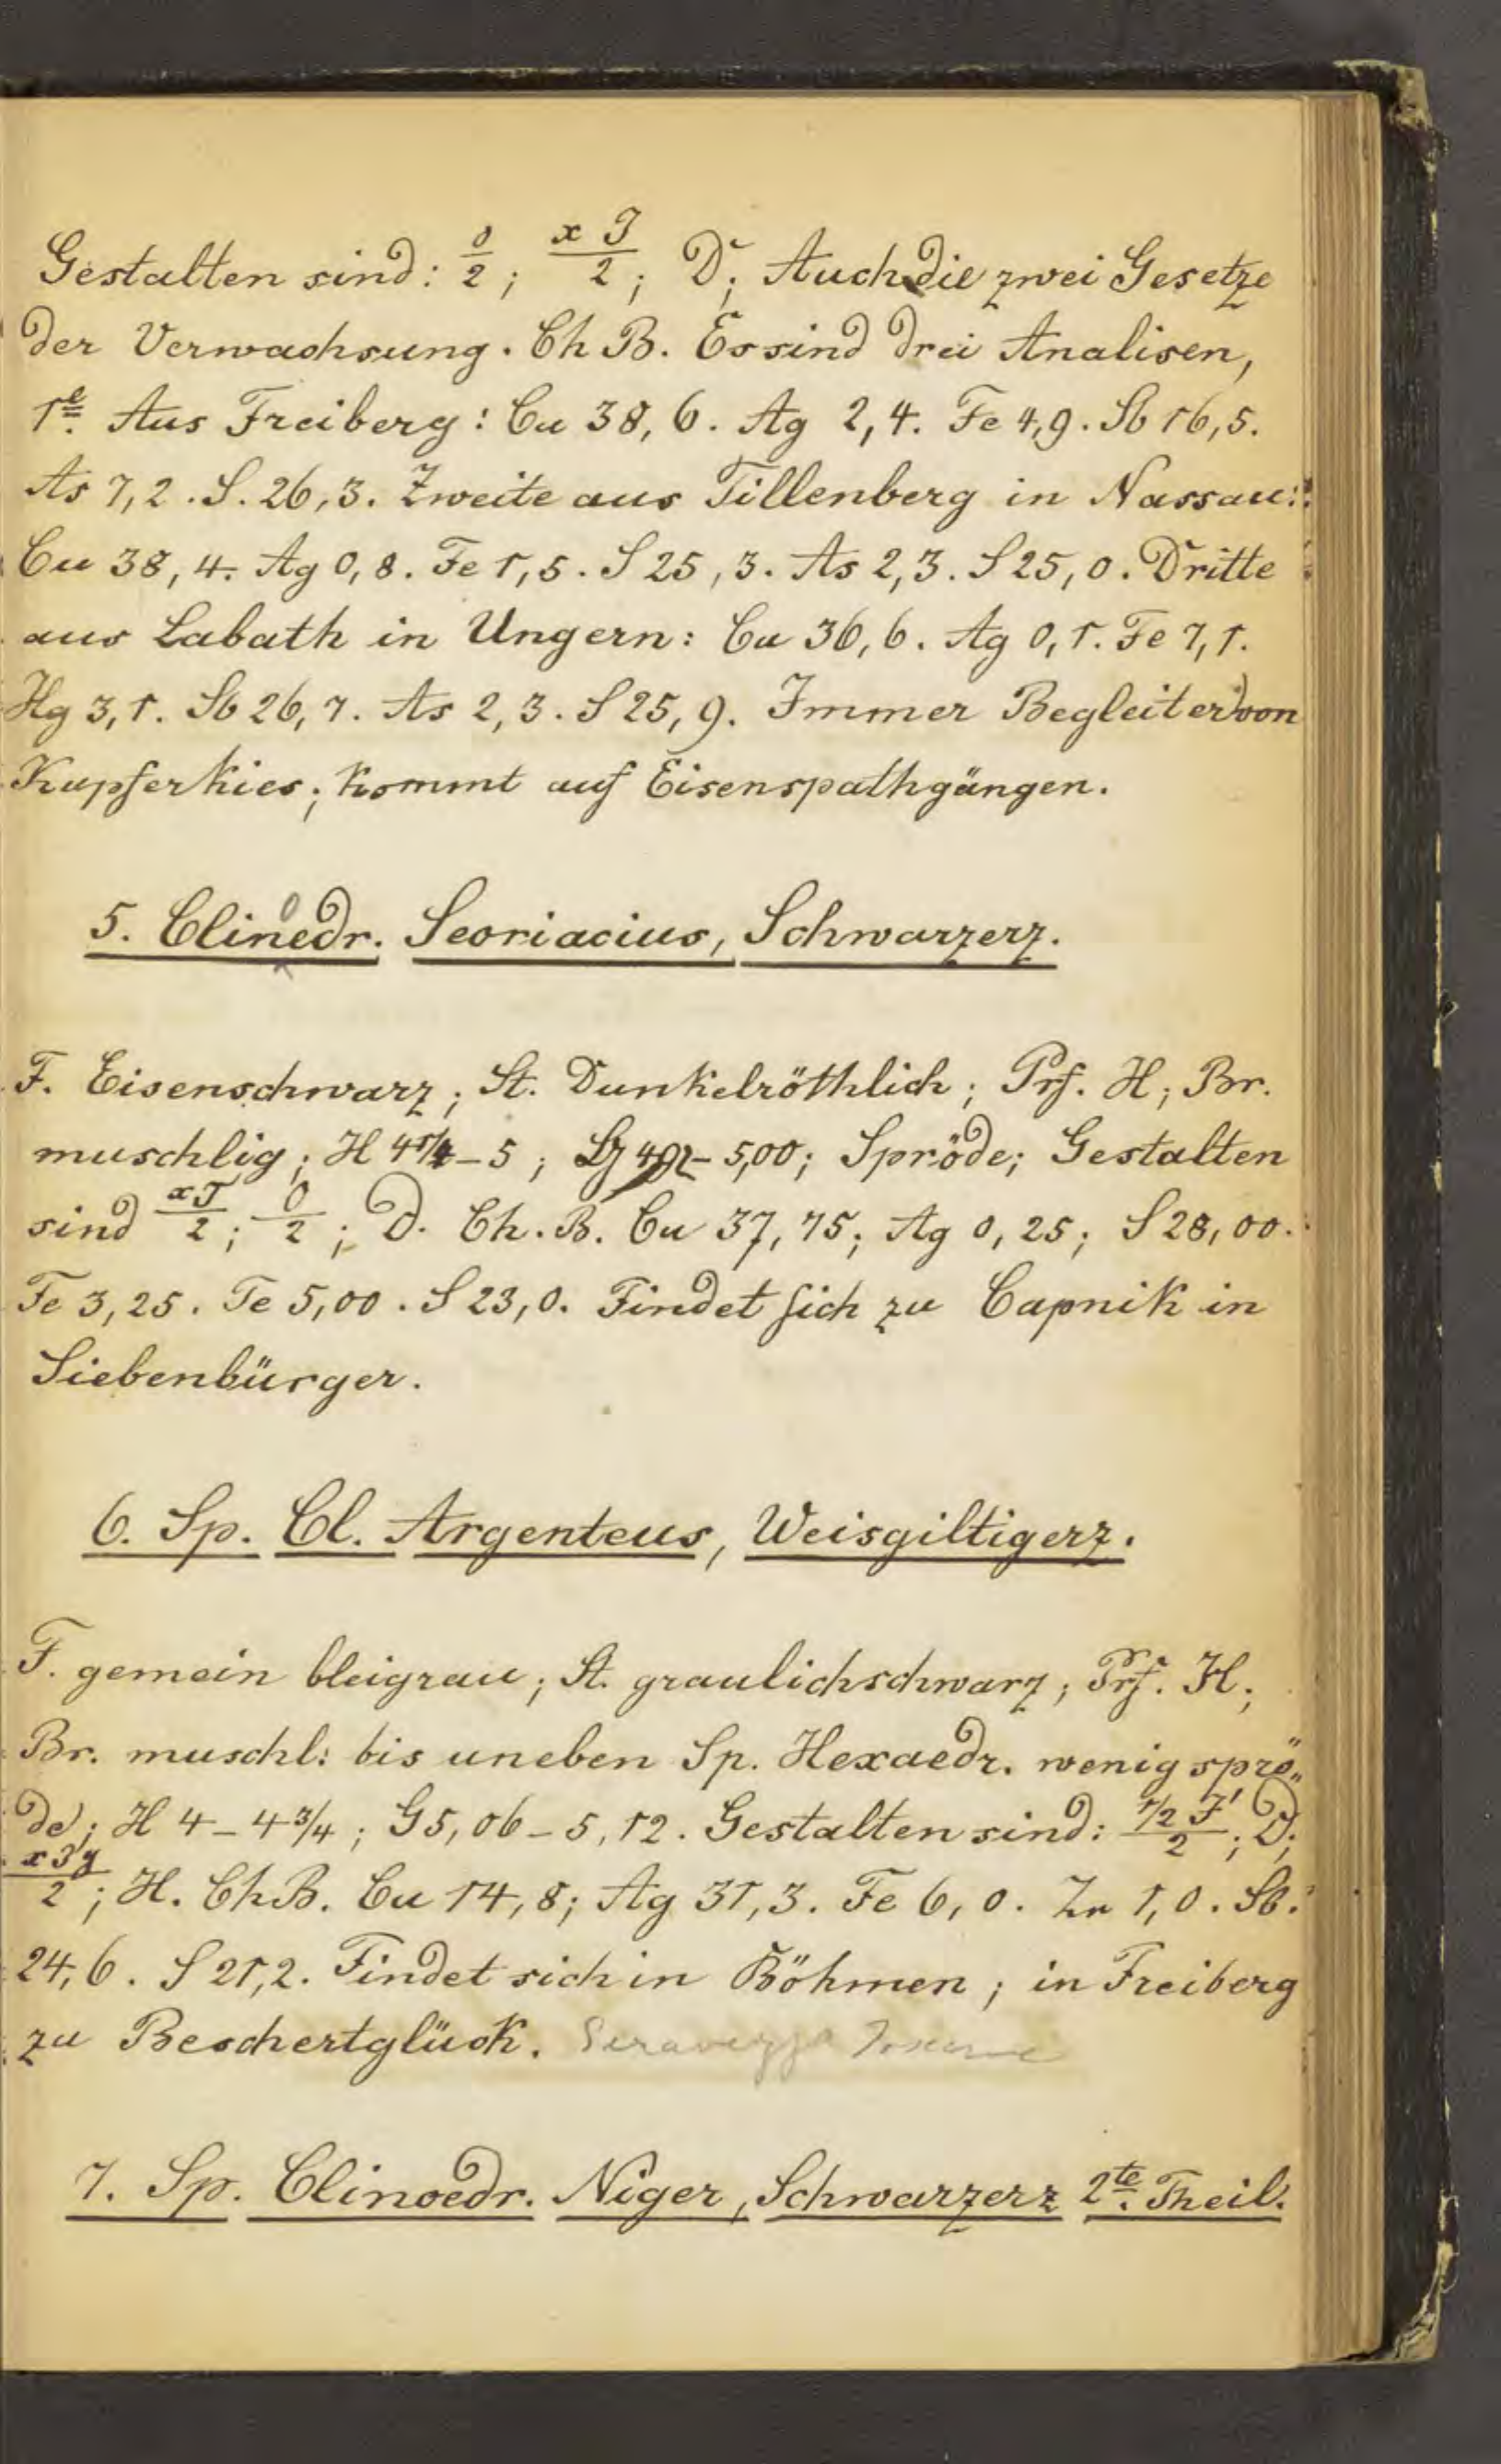 Gestalten sind: 0/2; x J/2; D; Auch die zwei Gesetze
der Verwachsung. Ch B. Es sind drei Analisen,
1te. Aus Freiberg: Cu 38,6. Ag 2,4. Fe 4,9. Sb 16,5.
As 7,2. S. 26,3. Zweite aus Tillenberg in Nassau:
Cu 38,4. Ag 0,8. Fe 1,5. S 25,3. As 2,3. S 25,0. Dritte
aus Labath in Ungern: Cu 36,6. Ag 0,1. Fe 7,1.
Hg 3,1. Sb 26,7. As 2,3. S 25,9. Immer Begleiter von
Kupferkies; kommt auf Eisenspathgängen.
5. Clinoedr. Seoriacius, Schwarzerz.
F. Eisenschwarz; St. Dunkelröthlich; Prf. H; Br.
muschlig; H 4 1/4 - 5; - 5,00; Spröde; Gestalten
sind xJ/2; 0/2; D. Ch. B. Cu 37,75; Ag 0,25; S 28,00.
Fe 3,25. Te 5,00. S 23,0. Findet sich zu Capnik in
Siebenbürger.
6. Sp. Cl. Argenteus, Weisgiltigerz.
F. gemein bleigrau; St. graulichschwarz; Prf. H;
Br. muschl: bis uneben Sp. Hexaedr. wenig sprö„
de; H 4 - 4 3/4; G 5,06 - 5,12. Gestalten sind: 1/2 J'/2; D;
x3y/2; H. Ch B. Cu 14,8; Ag 31,3. Fe 6,0. Zn 1,0. Sb.
24,6. S 21,2. Findet sich in Böhmen; in Freiberg
zu Beschertglück. Seravezza
7. Sp. Clinoedr. Niger, Schwarzerz 2te. Theil.